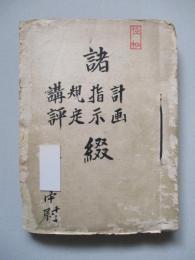 諸
計画
指示
規定
講評
綴
中尉